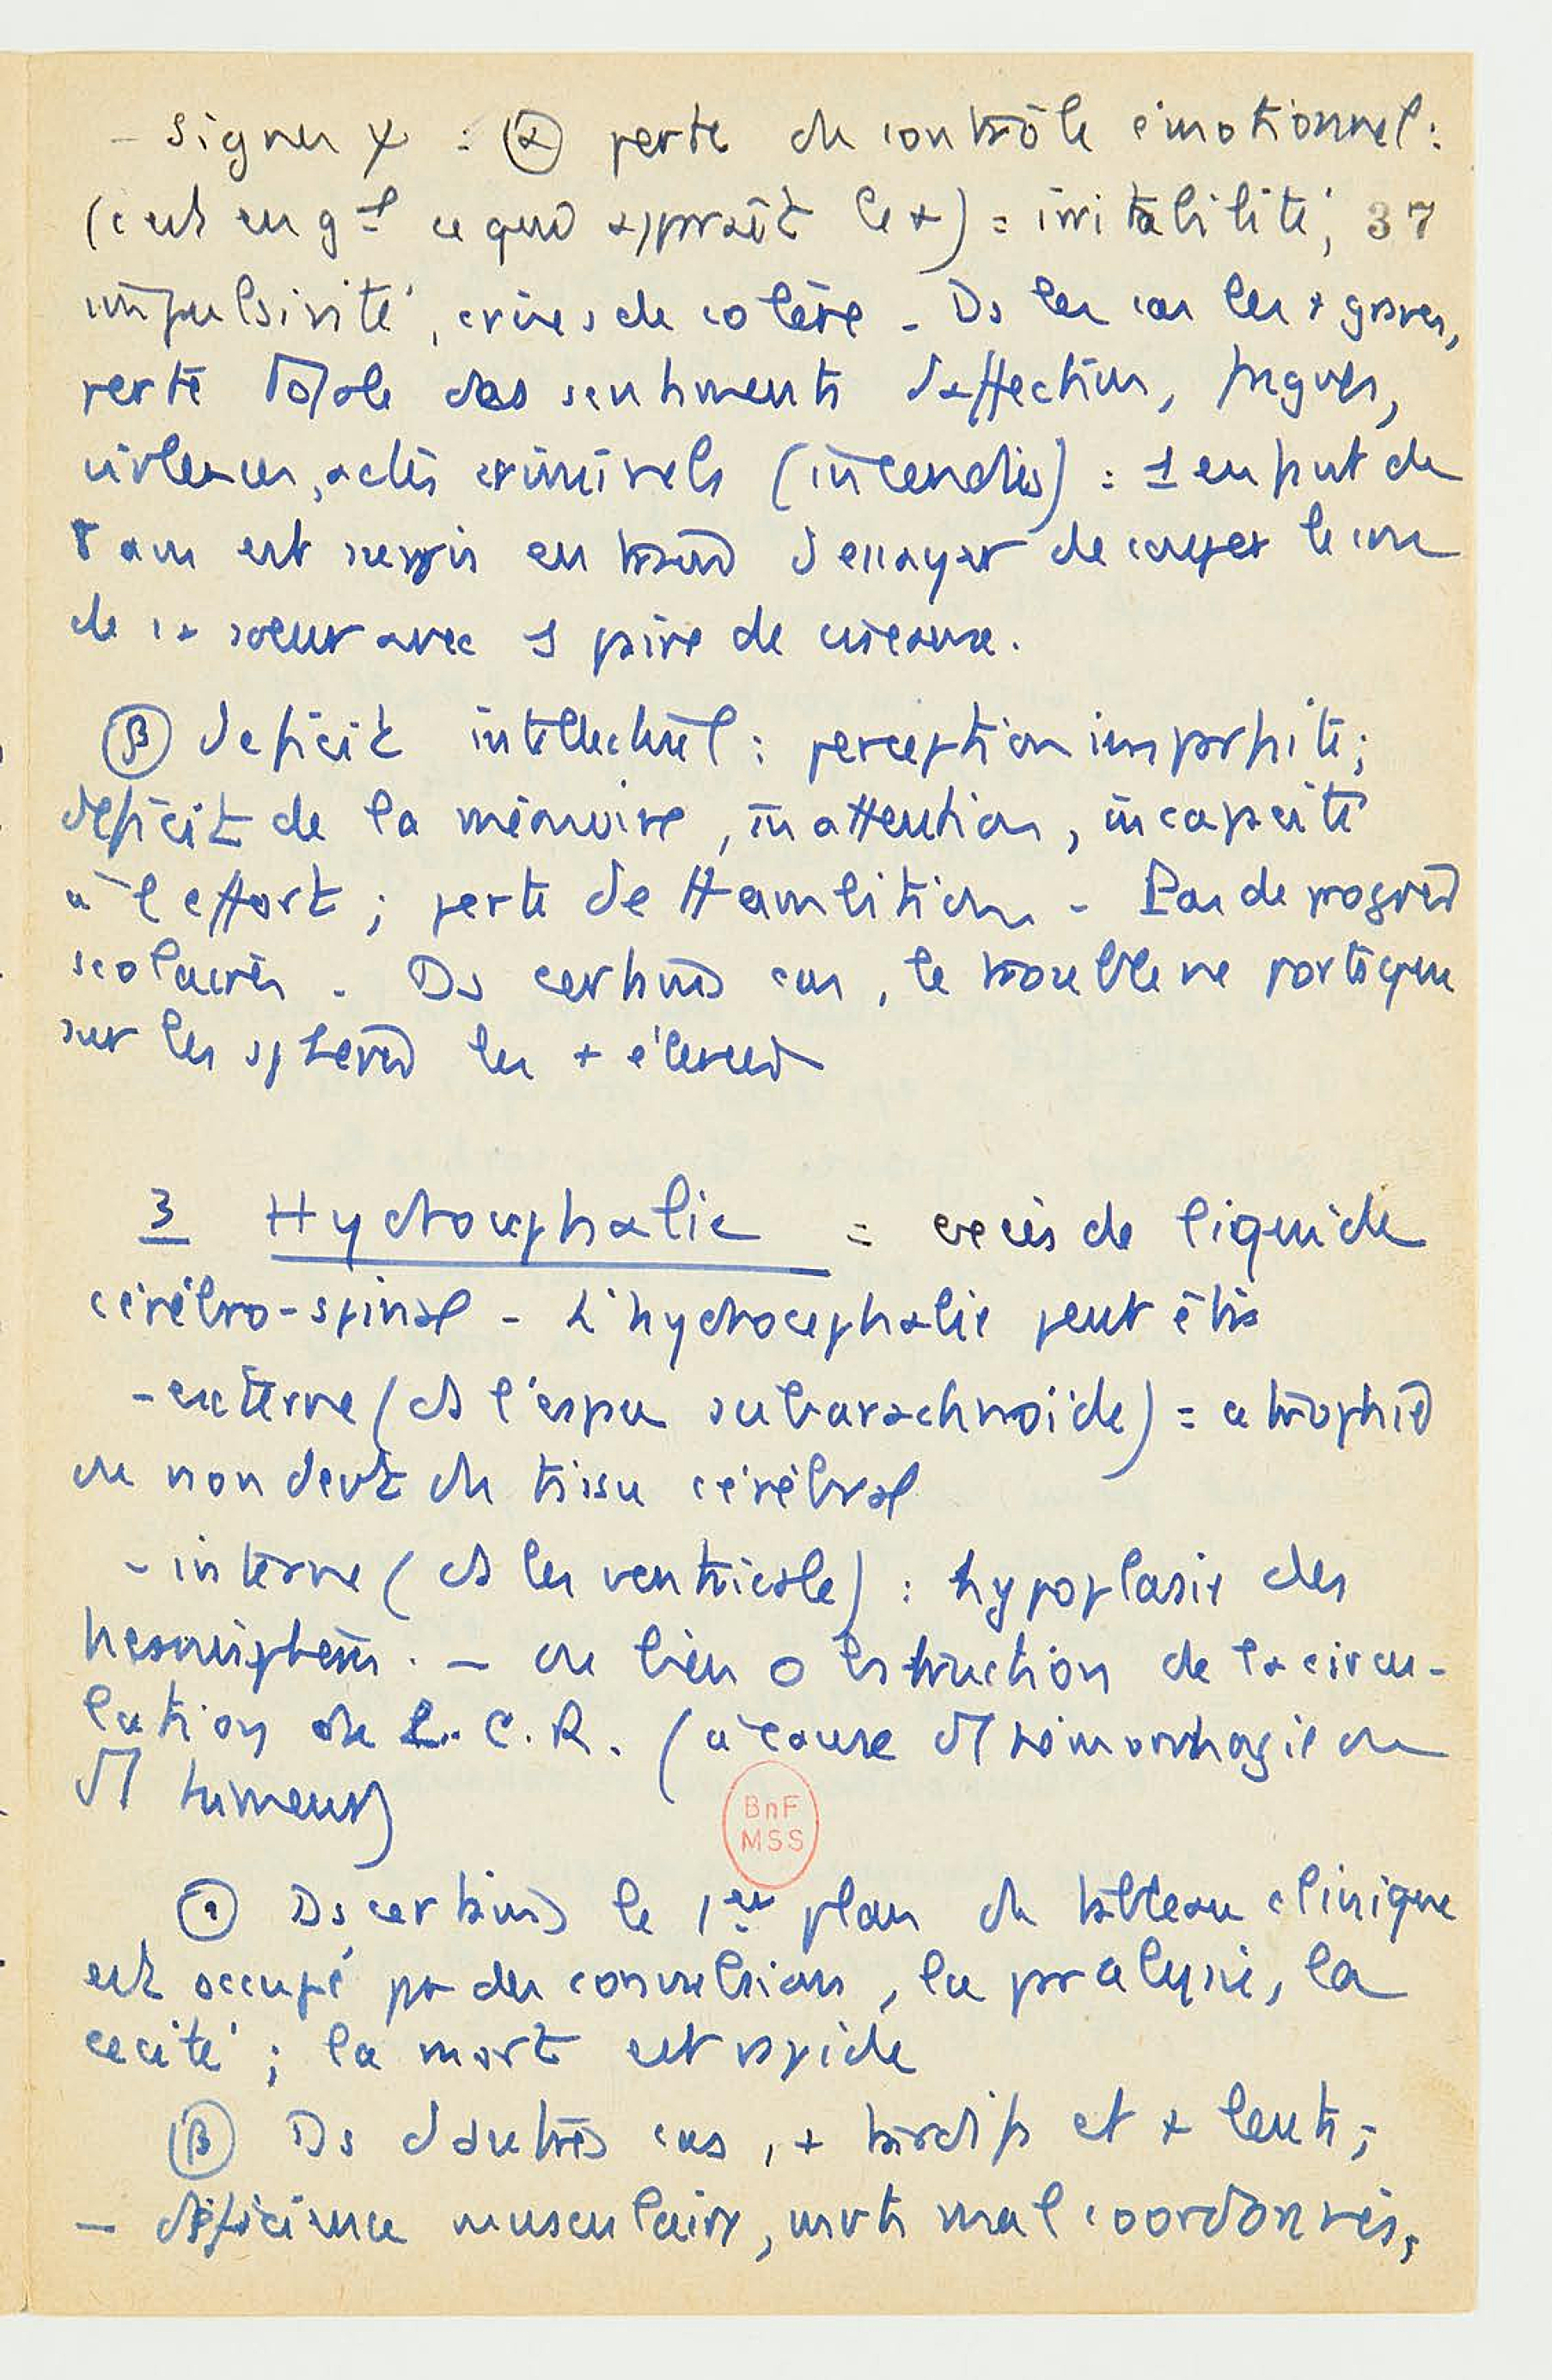 - Signes ψ : (α) perte du contrôle émotionnel :
(c'est en gal ce qui apparaît le +) = irritabilité, 37
impulsivité, crises de colère - Ds les cas les + graves,
perte totale des sentiments d'affection, fugues,
violences, actes criminels (incendies) : 1 enfant de
ans est surpris en train d'essayer de couper le cou
de sa soeur avec 1 paire de ciseaux.
(β) déficit intellectuel : perception imparfaite ;
déficit de la mémoire, inattention, incapacité
à l'effort ; perte de tte ambition - Pas de progrès
scolaires. Ds certains cas, le trouble ne porte que
sur les sphères les + élevées
3 Hydrocephalie = excès de liquide
cérébro-spinal - L'hydrocephalie peut être
- externe (ds l'espace subarachnoïde) = atrophie
ou non devt du tissu cérébral
- interne (ds les ventricule) : hypoplasie des
hemisphères. - ou bien obstruction de la circu-
lation du L.C.R. (à cause d'1 hémorrhagie ou
d'1 tumeur)
(α) Ds certains le 1er plan du tableau clinique
est occupé par des convulsions, la paralysie, la
cécité ; la mort est rapide
(β) Ds d'autres cas, + tardifs et + lents ;
- déficience musculaire, mvts mal coordonnés,
BnF
MSS